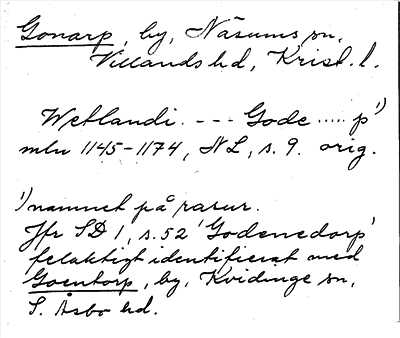 Gonarp, by, Näsums sn,
Villands hd, Krist. l.
Wetlandi. --- Gode ..... p 1)
mln 1145-1174, NL, s. 9. orig.
1) namnet på rasur.
Jfr SD 1, s. 52 'Godenedorp'
felaktigt identifierat med
Goentorp, by, Kvidinge sn,
S. Åsbo hd.